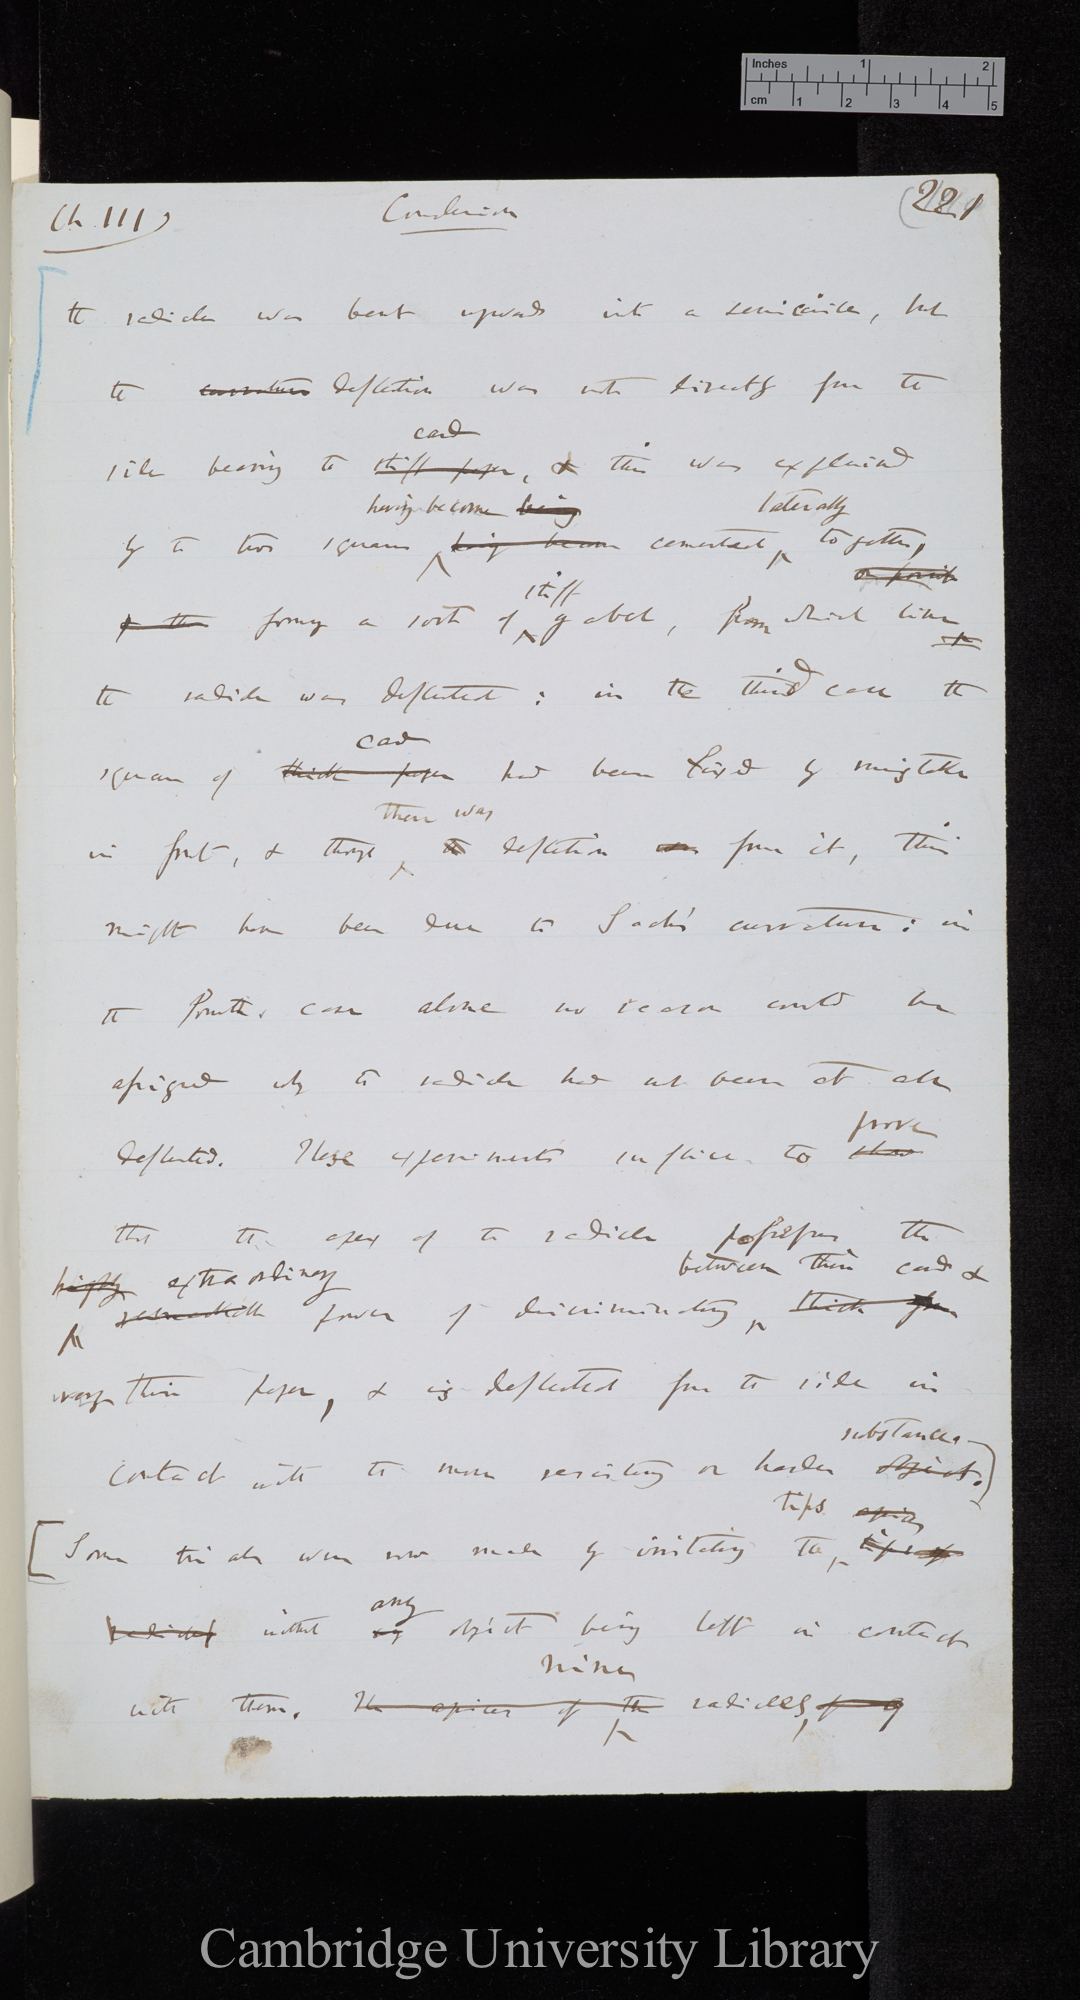 Inches 1 2
cm 1 2 3 4 5
Ch. III) Conclusion (221
the radicle was bent upwards into a semicircle, but
the curvature deflection was not directly from the
card
side bearing the stiff paper, & this was explained
having become being laterally
by the two squares having become cemented together,
stiff
forming a sort of gabel, from which line
the radicle was deflected: in the third case the
card
square of thick paper had been fixed by mistake
there was
in front, & though the deflection was from it, this
might have been due to Sachs' curvature: in
the fourth case alone no reason could be
assigned why the radicle had not been at all
prove
deflected. These experiments suffice to show
that the apex of the radicle possesses the
highly extraordinary between thin card &
remarkable power of discriminating thick from
very thin paper, & is deflected from the side in
substance.
contact with the more resisting or harder object.
tips apices
[Some trials were now made by irritating the tips of
radicles without any object being left in contact
nine
with them. The apices of the radicles, of
Cambridge University Library